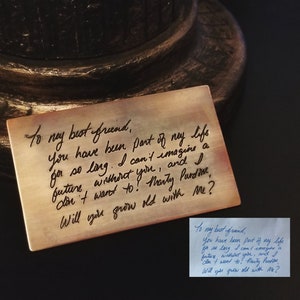 To my best friend,
You have been part of my life
for so long. I can't imagine a
future, without you, and I
don't want to!
Will you grow old with me?
To my best friend,
You have been part of my life
for so long. I can't imagine a
future, without you, and I
don't want to!
Will you grow old with me?